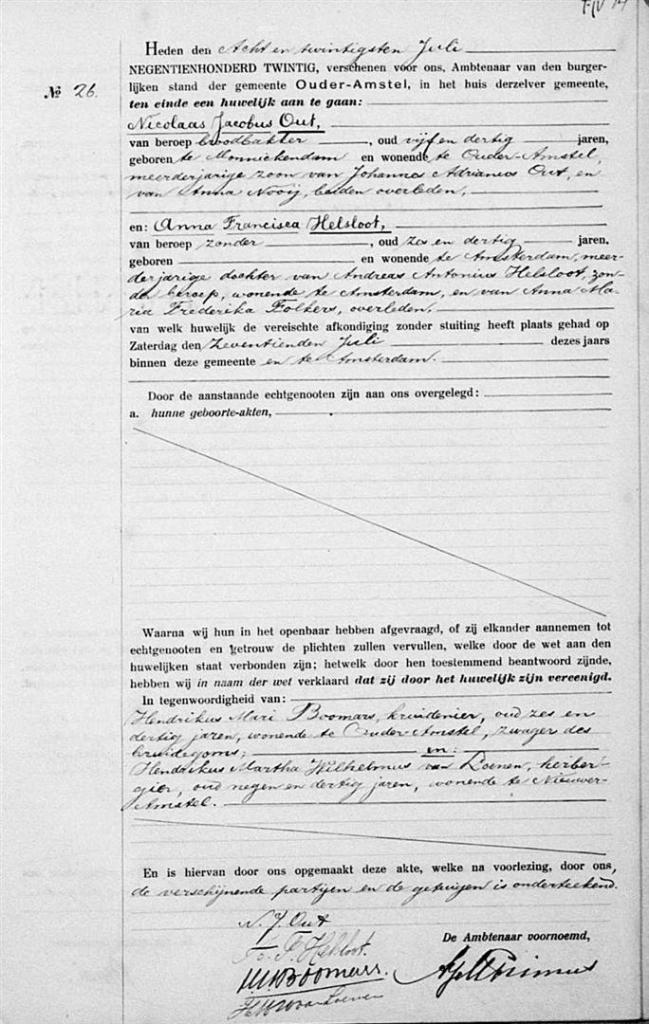 Heden den Acht en twintigsten Juli
NEGENTIENHONDERD TWINTIG, verschenen voor ons, Ambtenaar van den burger-
№ 26.
lijken stand der gemeente Ouder-Amstel, in het huis derzelver gemeente,
ten einde een huwelijk aan te gaan:
Nicolaas Jacobus Out,
van beroep broodbakker, oud vijf en dertig jaren,
geboren te Monnickendam en wonende te Ouder-Amstel,
meerderjarige zoon van Johannes Adrianus Out, en
van Anna Nooij, beiden overleden,
en: Anna Francisca Helsloot,
van beroep zonder, oud zes en dertig jaren,
geboren en wonende te Amsterdam, meer-
derjarige dochter van Andreas Antonius Helsloot, zon-
der beroep, wonende te Amsterdam, en van Anna Ma-
ria Frederika Folkers, overleden,
van welk huwelijk de vereischte afkondiging zonder stuiting heeft plaats gehad op
Zaterdag den Zeventienden Juli dezes jaars
binnen deze gemeente en te Amsterdam.
Door de aanstaande echtgenooten zijn aan ons overgelegd:
a. hunne geboorte-akten,
Waarna wij hun in het openbaar hebben afgevraagd, of zij elkander aannemen tot
echtgenooten en getrouw de plichten zullen vervullen, welke door de wet aan den
huwelijken staat verbonden zijn; hetwelk door hen toestemmend beantwoord zijnde,
hebben wij in naam der wet verklaard dat zij door het huwelijk zijn vereenigd.
In tegenwoordigheid van:
Hendrikus Mari Boomars, kruidenier, oud zes en
dertig jaren, wonende te Ouder-Amstel, zwager des
bruidegoms; en:
Hendrikus Martha Wilhelmus van Loenen, herber-
gier, oud negen en dertig jaren, wonende te Nieuwer-
Amstel.
En is hiervan door ons opgemaakt deze akte, welke na voorlezing, door ons,
de verschijnende partijen en de getuigen is onderteekend.
N. J. Out
F. Helsloot.
De Ambtenaar voornoemd,
HMBoomars.
HMW van Loenen